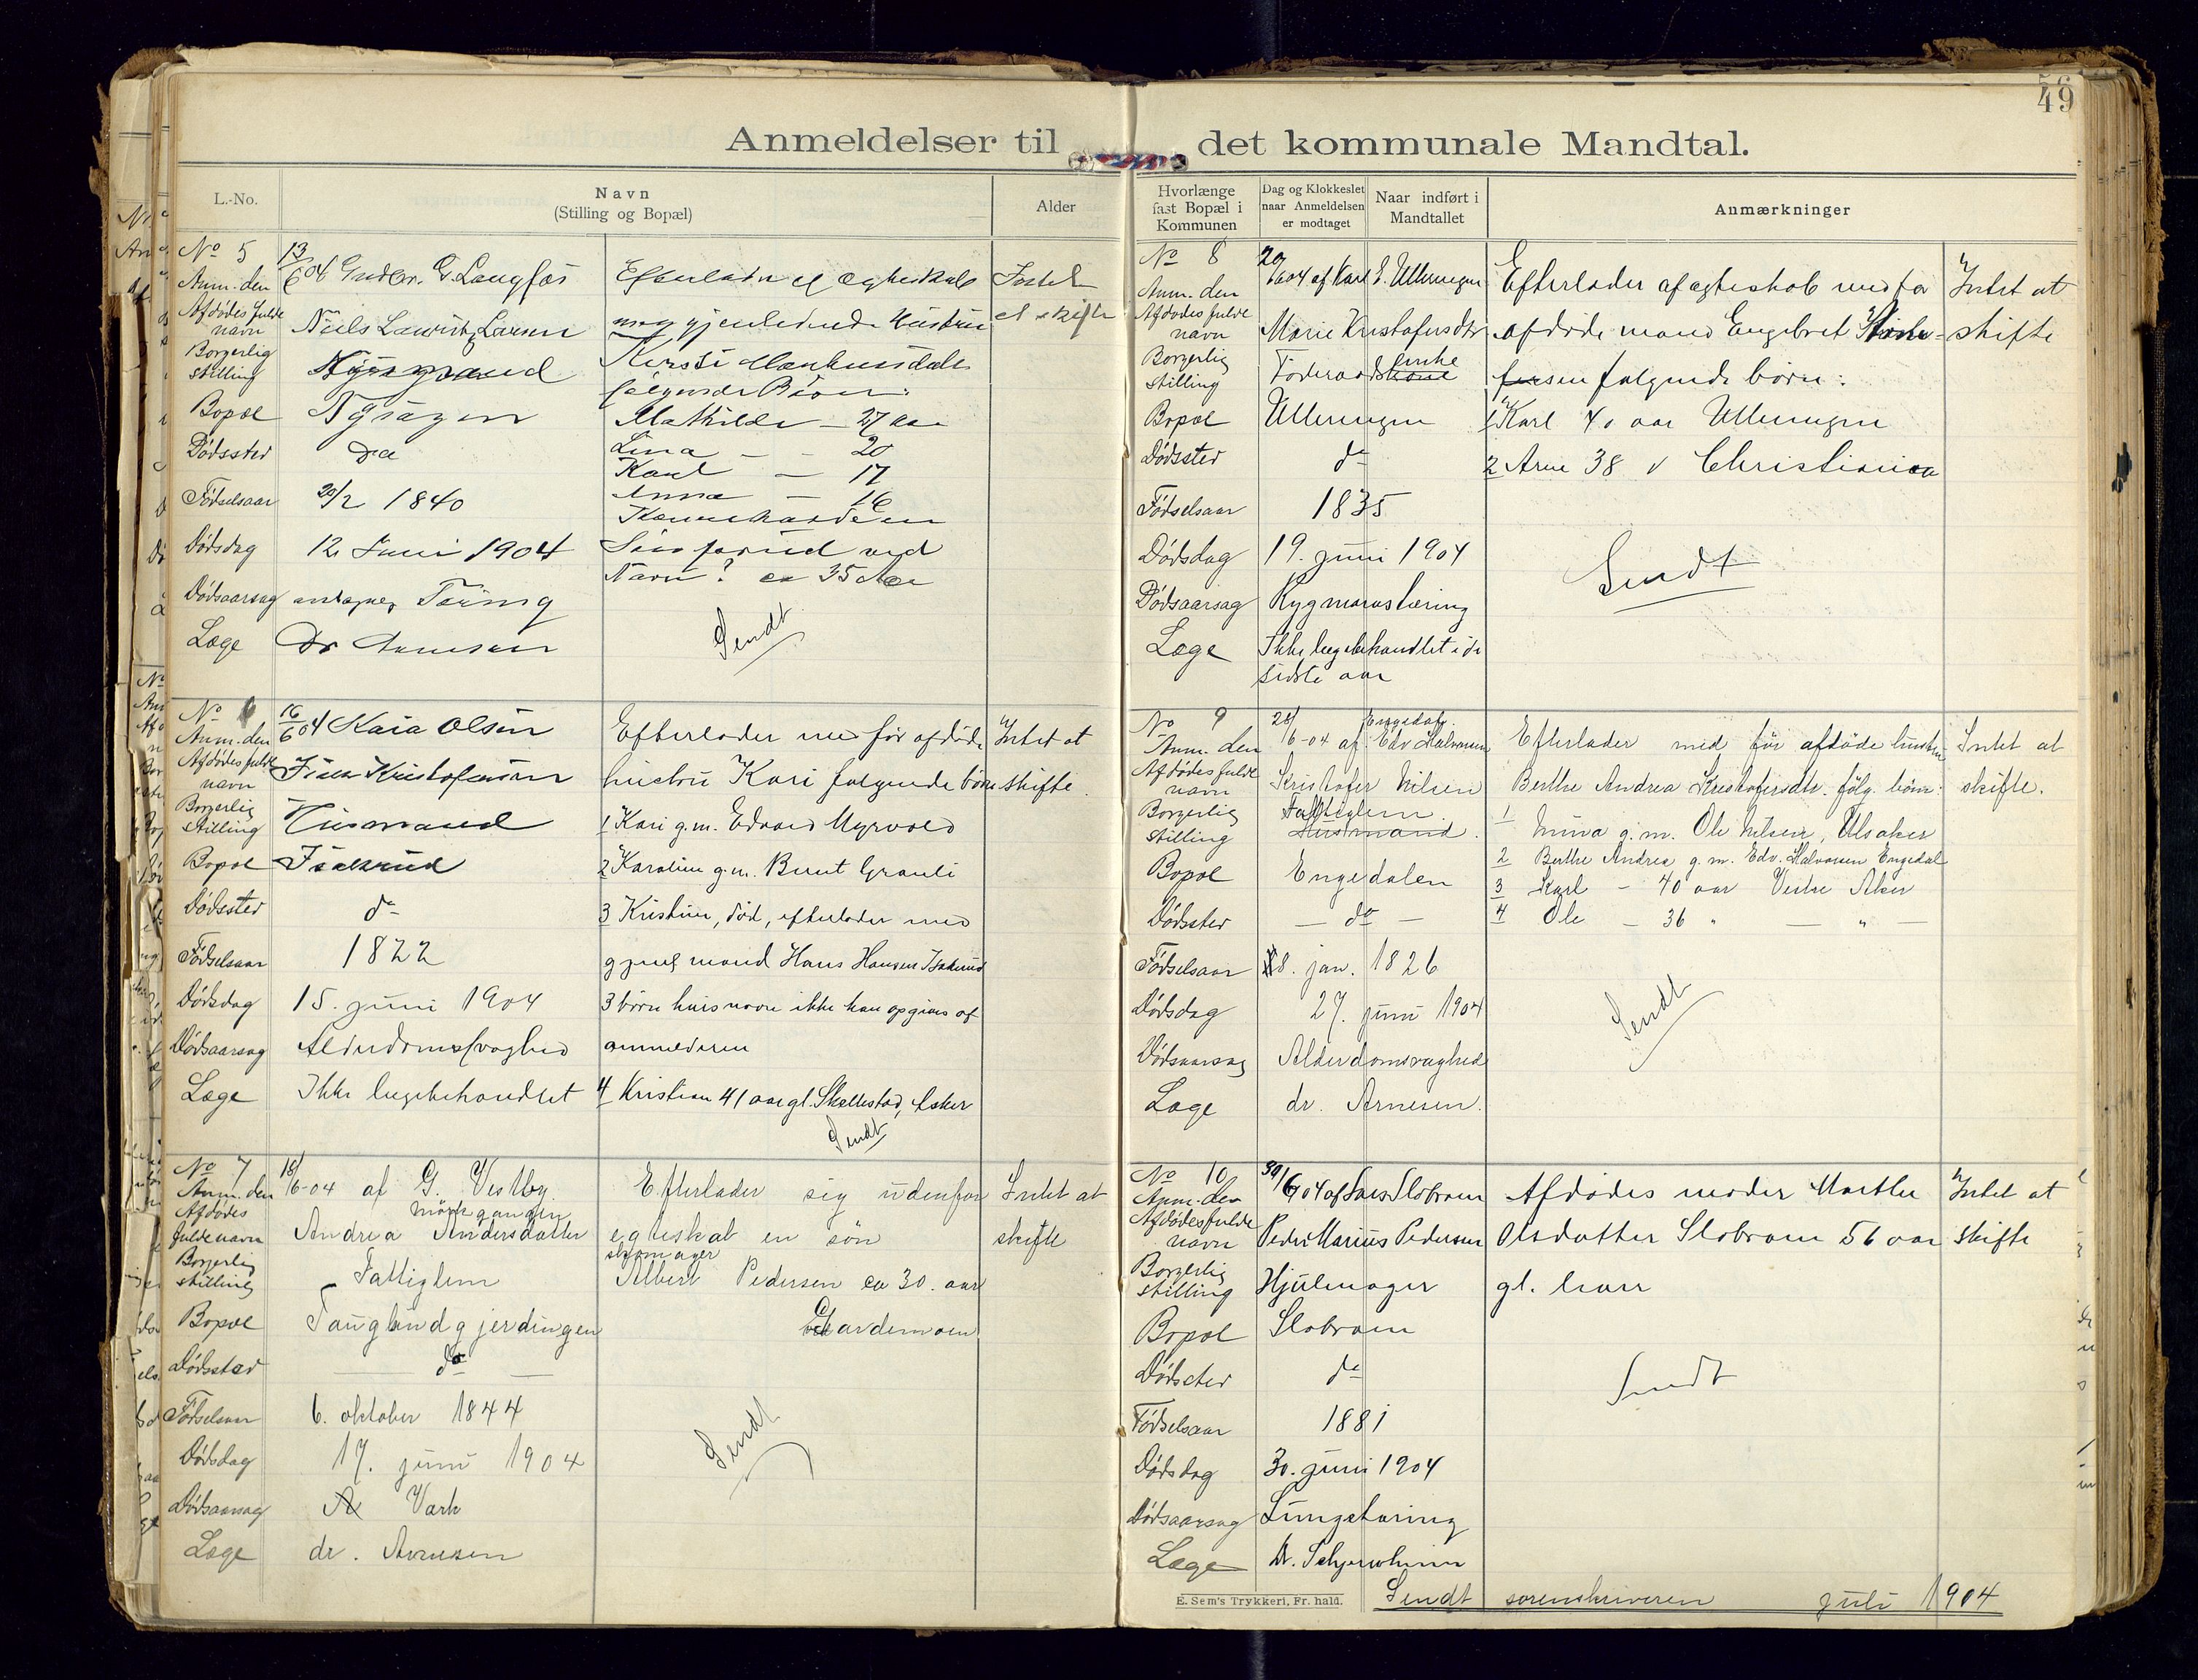 49
Anmeldelser til det kommunale Mandtal.
L.-No.
Navn
(Stilling og Bopæl)
Alder
Hvorlænge fast Bopæl i Kommunen
Dag og Klokkeslet naar Anmeldelsen er modtaget
Naar indført i Mandtallet
Anmærkninger
No 5
Anm. den 13/6 04 G. Langfos
Efterlader af ægteskab
Intet
at skifte
Afdødes fulde navn Niels Lauritz Larsen
med gjenlevende Hustru
Borgerlig stilling
Kirsti
følgende Børn:
Bopæl
Mathilde - 27 aar
Dødssted do
Lina - - 20
Karl - 17
Fødselsaar 20/2 1840
Anna - 16
Dødsdag 12 Juni 1904
Navn? ca 35 Aar
Dødsaarsag antagelig Tæring
Læge Dr Arnesen
Sendt
No 6
Anm. den 16/6 04 Kaia Olsen
Efterlader med før afdøde
Intet at
Afdødes fulde navn Kristofersen
hustru Kari følgende børn
skifte.
Borgerlig stilling Husmand
1 Kari g.m. Edvard Myrvold
Bopæl Isakrud
2 Karoline g.m. Bernt Granli
Dødssted do
3 Kristine, død, efterlader med
Fødselsaar 1822
gjenl mand Hans Hansen Isakrud
Dødsdag 15. juni 1904
3 børn hvis navne ikke kan opgives af
Dødsaarsag Alderdomssvaghed
anmelderen
Læge Ikke lægebehandlet
4 Kristian 41 aar gl. Skallestad, Asker
Sendt
No 7
Anm. den 18/6-04 af G. Vestby
Efterlader sig udenfor
Intet at
Afdødes fulde navn Andrea Andersdatter
egteskab en søn
skifte
Borgerlig stilling Fattiglem
skomager
Albert Pedersen ca 30. aar
Bopæl Tauglundgjerdingen
Gardemoen
Dødssted — do —
Fødselsaar 6. oktober 1844
Dødsdag 17. juni 1904
Sendt
Dødsaarsag Værk
Læge dr. Arnesen
No 8
Anm. den 20/6 04 af Karl E. Ulleringen
Efterlader af ægteskab med før
Intet at
Afdødes fulde navn Marie Kristofersdtr
afdøde mand Engebret
skifte
Borgerlig stilling Føderaadsenke
følgende børn:
Bopæl Ulleringen
1 Karl 40 aar Ulleringen
Dødssted do
2 Arne 38 " Christiania
Fødselsaar 1835
Dødsdag 19. juni 1904
Sendt
Dødsaarsag Rygmarvstæring
Læge Ikke lægebehandlet i de
sidste aar
No 9
Anm. den 28/6-04 af Edv Halvorsen
Efterlader med før afdøde hustru
Intet at
Afdødes fulde navn Kristofer Nilsen
Berthe Andrea Kristofersdtr. følg. børn:
skifte.
Borgerlig stilling Fattiglem. Husmand.
1 Mina g.m. Ole Nilsen, Ulsaker
Bopæl Engedalen
2 Berthe Andrea g.m. Edv. Halvorsen Engedal
3 Karl - 40 aar Vestre Aker
Dødssted — do —
4 Ole - 36 " — " —
Fødselsaar 8. jan. 1826
Dødsdag 27. juni 1904
Sendt
Dødsaarsag Alderdomsvaghed
Læge dr. Arnesen.
No 10
Anm. den 30/6 04 af Lars Slobraaen
Afdødes moder Marthe
Intet at
Afdødes fulde navn Peder Marius Pedersen
Olsdatter Slobraaen 56 aar
skifte
Borgerlig stilling Hjulmager
gl.
Bopæl Slobraaen
Dødssted do
Sendt
Fødselsaar 1881
Dødsdag 30. juni 1904
Dødsaarsag Lungetæring
Læge Dr.
E. Sem's Trykkeri, Fr. hald.
Sendt sorenskriveren juli 1904